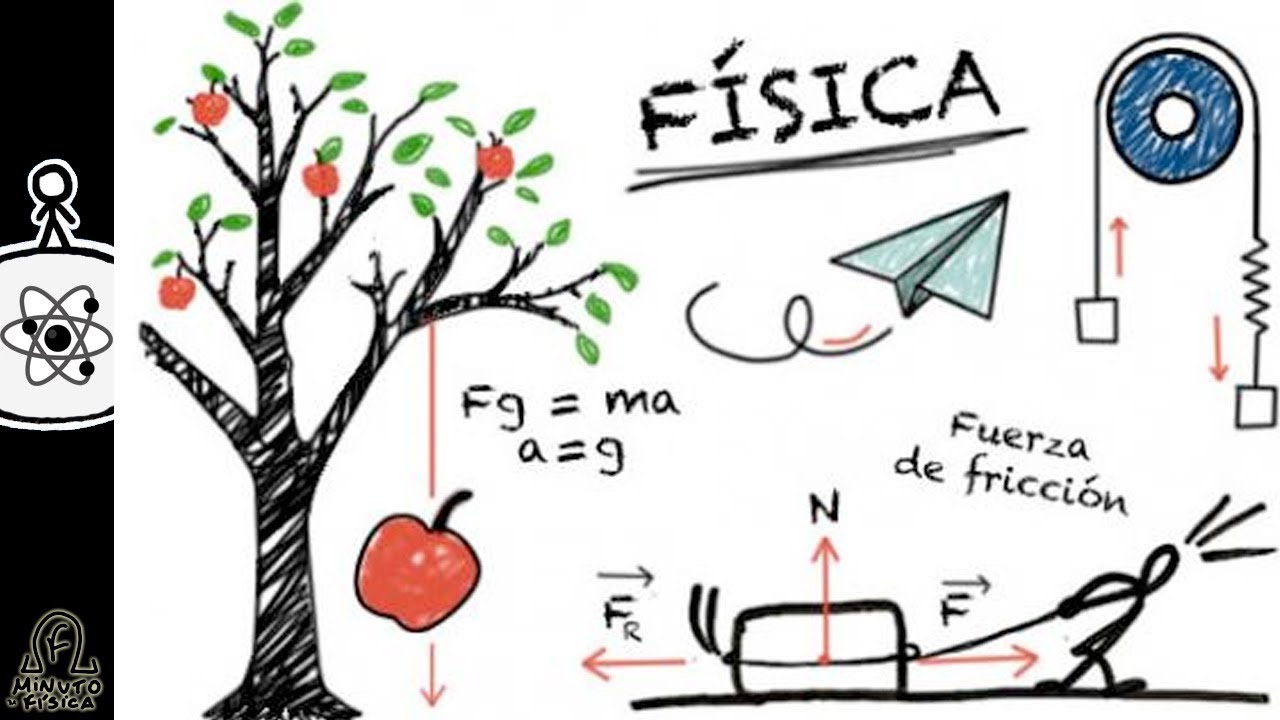 FÍSICA
Fg = ma
a = g
Fuerza
de fricción
N
F_R
F
MINUTO
DE FÍSICA